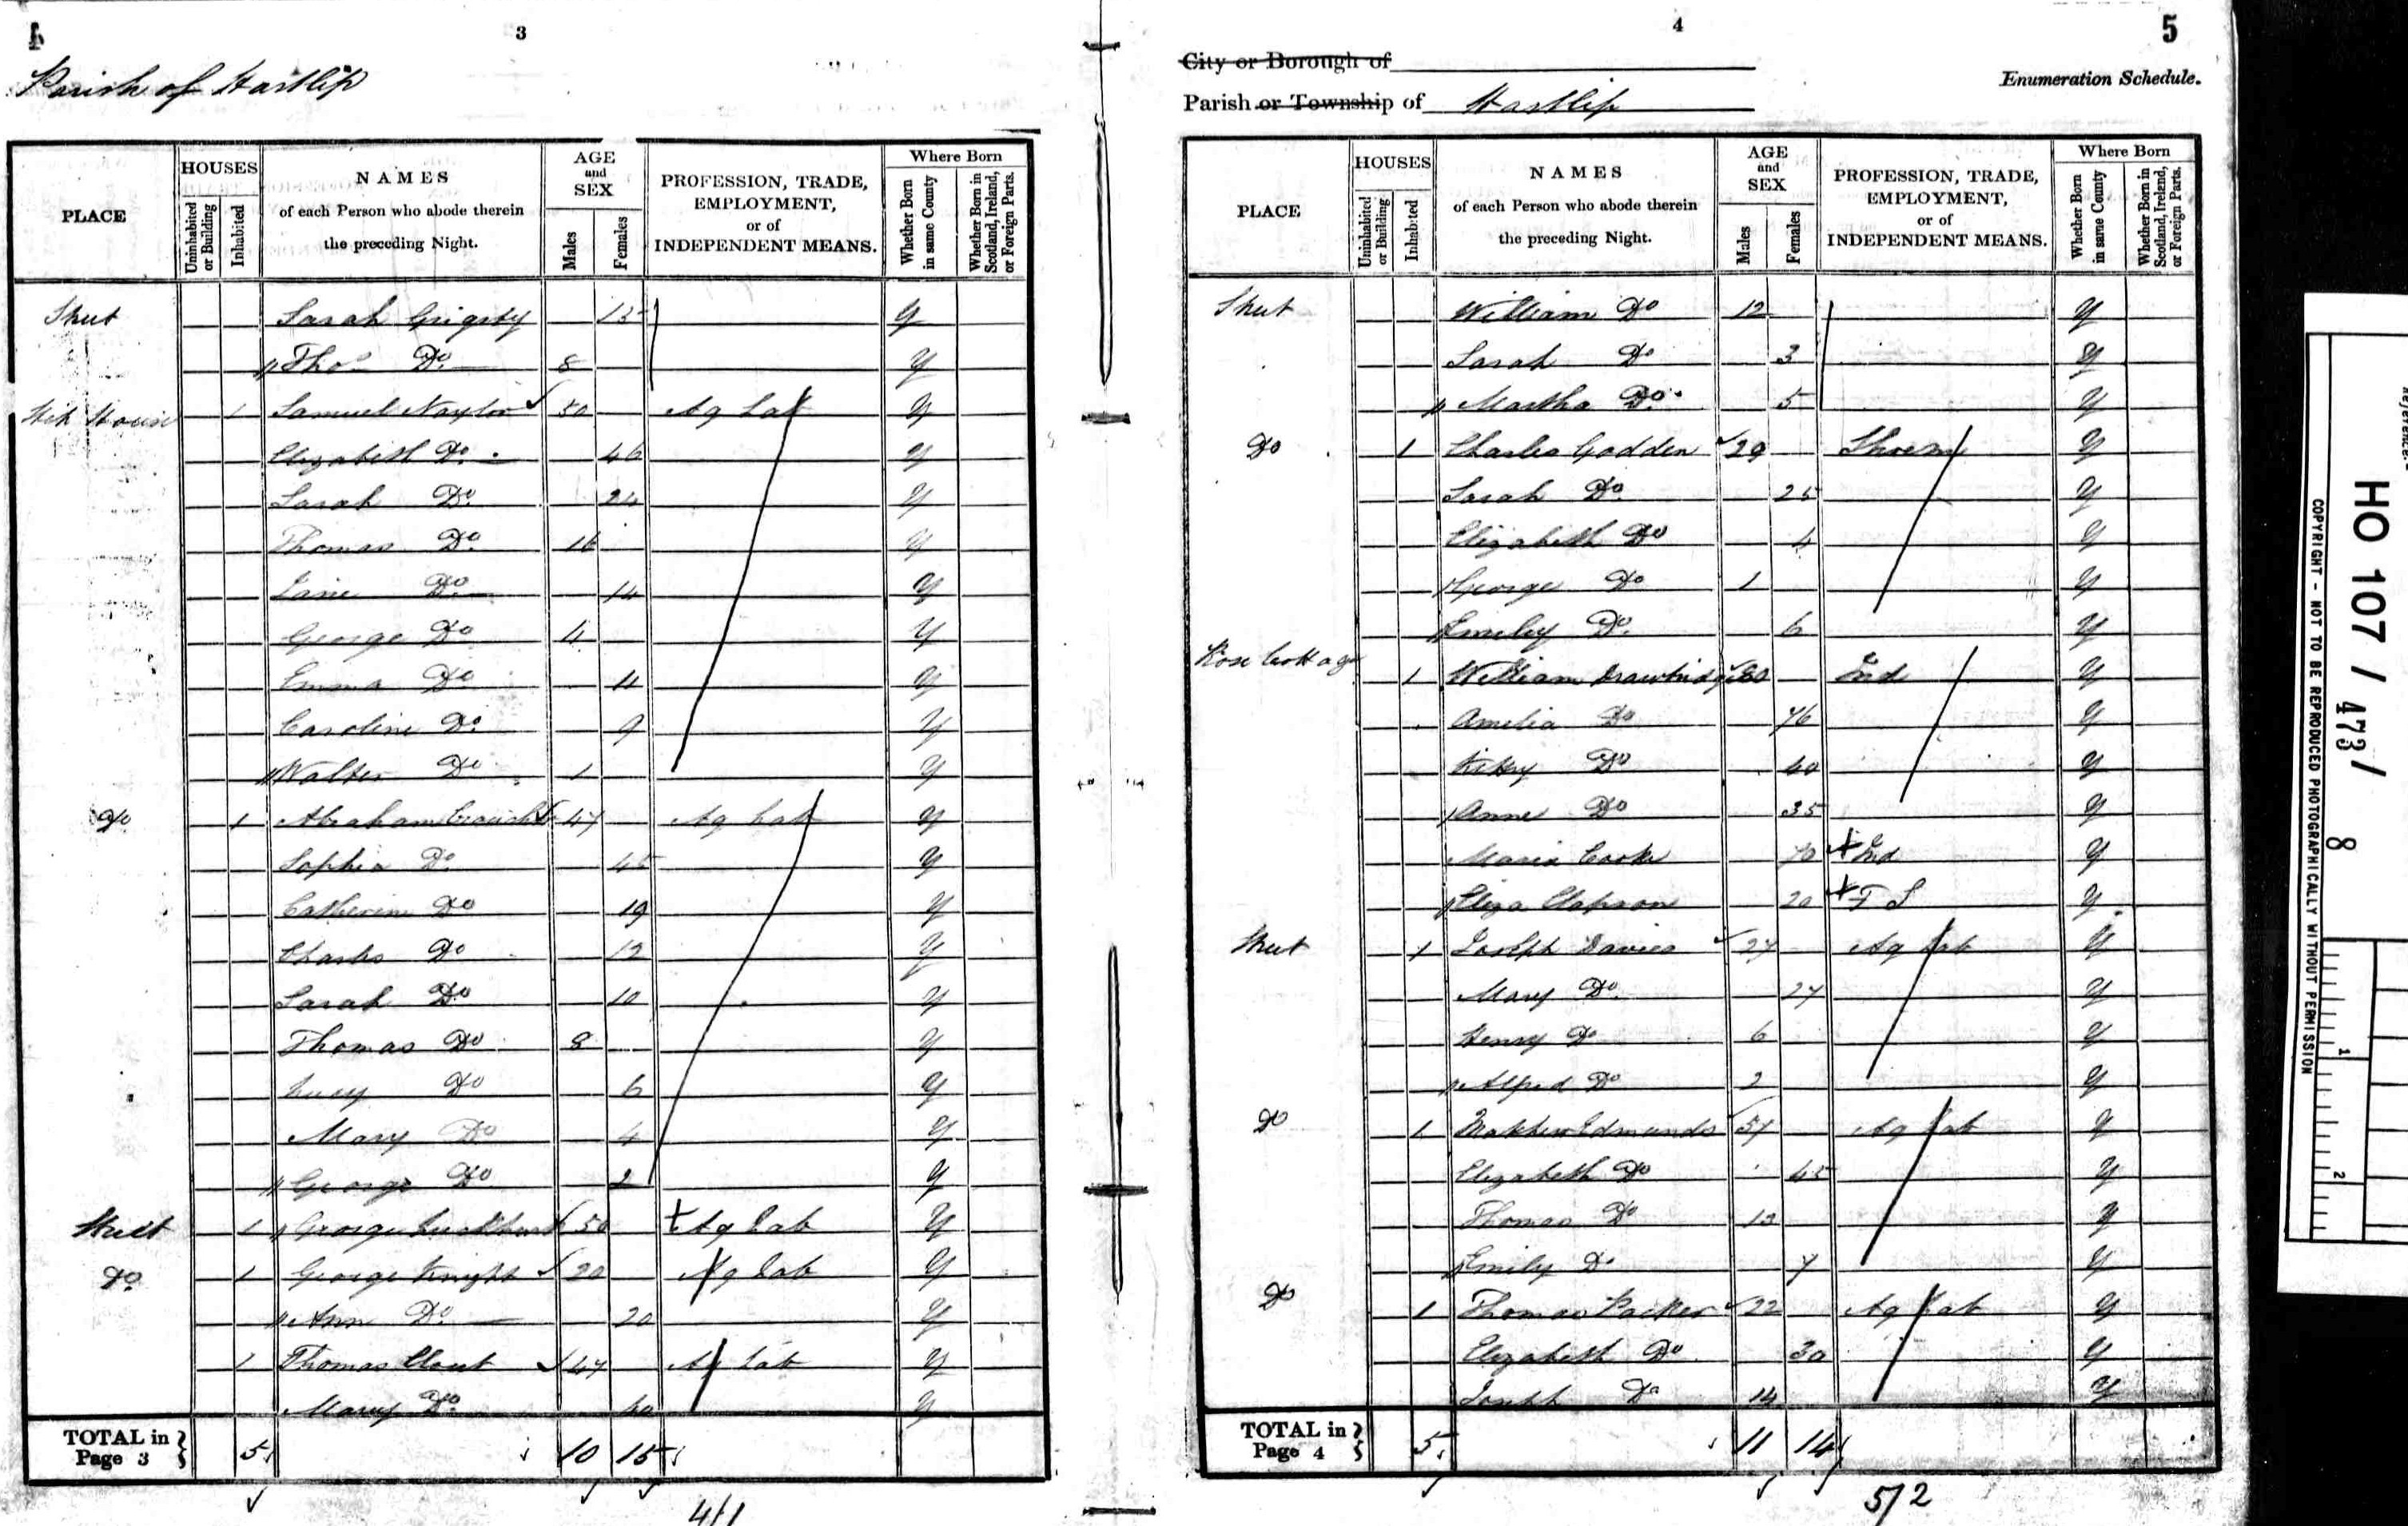 3
Parish of Hartlip
PLACE
HOUSES
Uninhabited or Building
Inhabited
NAMES
of each Person who abode therein
the preceding Night.
AGE
and
SEX
Males
Females
PROFESSION, TRADE,
EMPLOYMENT,
or of
INDEPENDENT MEANS.
Where Born
Whether Born in same County
Whether Born in Scotland, Ireland, or Foreign Parts.
Street Sarah Grigsby 15 y
Thos Do 8 y
1 Samuel Naylor 50 Ag Lab y
Elizabeth Do 46 y
Sarah Do 24 y
Thomas Do 16 y
Jane Do 14 y
George Do y
Emma Do 11 y
Caroline Do 9 y
Walter Do 1 y
Do 1 Abraham 47 Ag Lab y
Sophia Do 45 y
Catherine Do 19 y
Charles Do 12 y
Sarah Do 10 y
Thomas Do 8 y
Lucy Do 6 y
Mary Do 4 y
George Do 2 y
Street 1 George 50 Ag Lab y
Do 1 George Knight 20 Ag Lab y
Ann Do 20 y
1 Thomas Clout 47 Ag Lab y
Mary Do 40 y
TOTAL in Page 3 5 10 15
4/1
4
5
City or Borough of
Enumeration Schedule.
Parish or Township of Hartlip
PLACE
HOUSES
Uninhabited or Building
Inhabited
NAMES
of each Person who abode therein
the preceding Night.
AGE
and
SEX
Males
Females
PROFESSION, TRADE,
EMPLOYMENT,
or of
INDEPENDENT MEANS.
Where Born
Whether Born in same County
Whether Born in Scotland, Ireland, or Foreign Parts.
Street William Do 12 y
Sarah Do 3 y
Martha Do 5 y
Do 1 Charles Godden 29 Shoem y
Sarah Do 25 y
Elizabeth Do 4 y
George Do 1 y
Emiley Do 6 y
Rose Cottage 1 William Drawbridge 80 Ind y
Amelia Do 76 y
Kitty Do 40 y
Anne Do 35 y
Maria Cooke 70 Ind y
Eliza Clapson 20 F S y
Street 1 Joseph Davies 27 Ag Lab y
Mary Do 27 y
Henry Do 6 y
Alfred Do 2 y
Do 1 Matthew Edmunds 57 Ag Lab y
Elizabeth Do 45 y
Thomas Do 13 y
Emily Do 7 y
Do 1 Thomas Packer 22 Ag Lab y
Elizabeth Do 30 y
Joseph Do 14 y
TOTAL in Page 4 5 11 14
5/2
HO 107 / 473 / 8
COPYRIGHT - NOT TO BE REPRODUCED PHOTOGRAPHICALLY WITHOUT PERMISSION
1
2